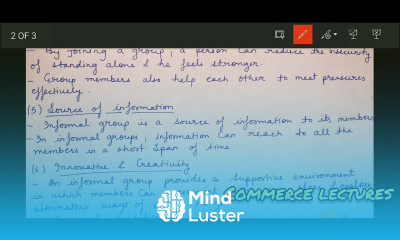 2 OF 3
- By joining a group, a person can reduce the insecurity
of standing alone & he feels stronger.
- Group members also help each other to meet pressures
effectively.
(5) Source of information
- Informal group is a source of information to its members
- In informal groups, information can reach to all the
members in a short span of time.
(6) Innovative & Creativity
- An informal group provides a supportive environment
in which members can
alternative ways of
COMMERCE LECTURES
Mind
Luster